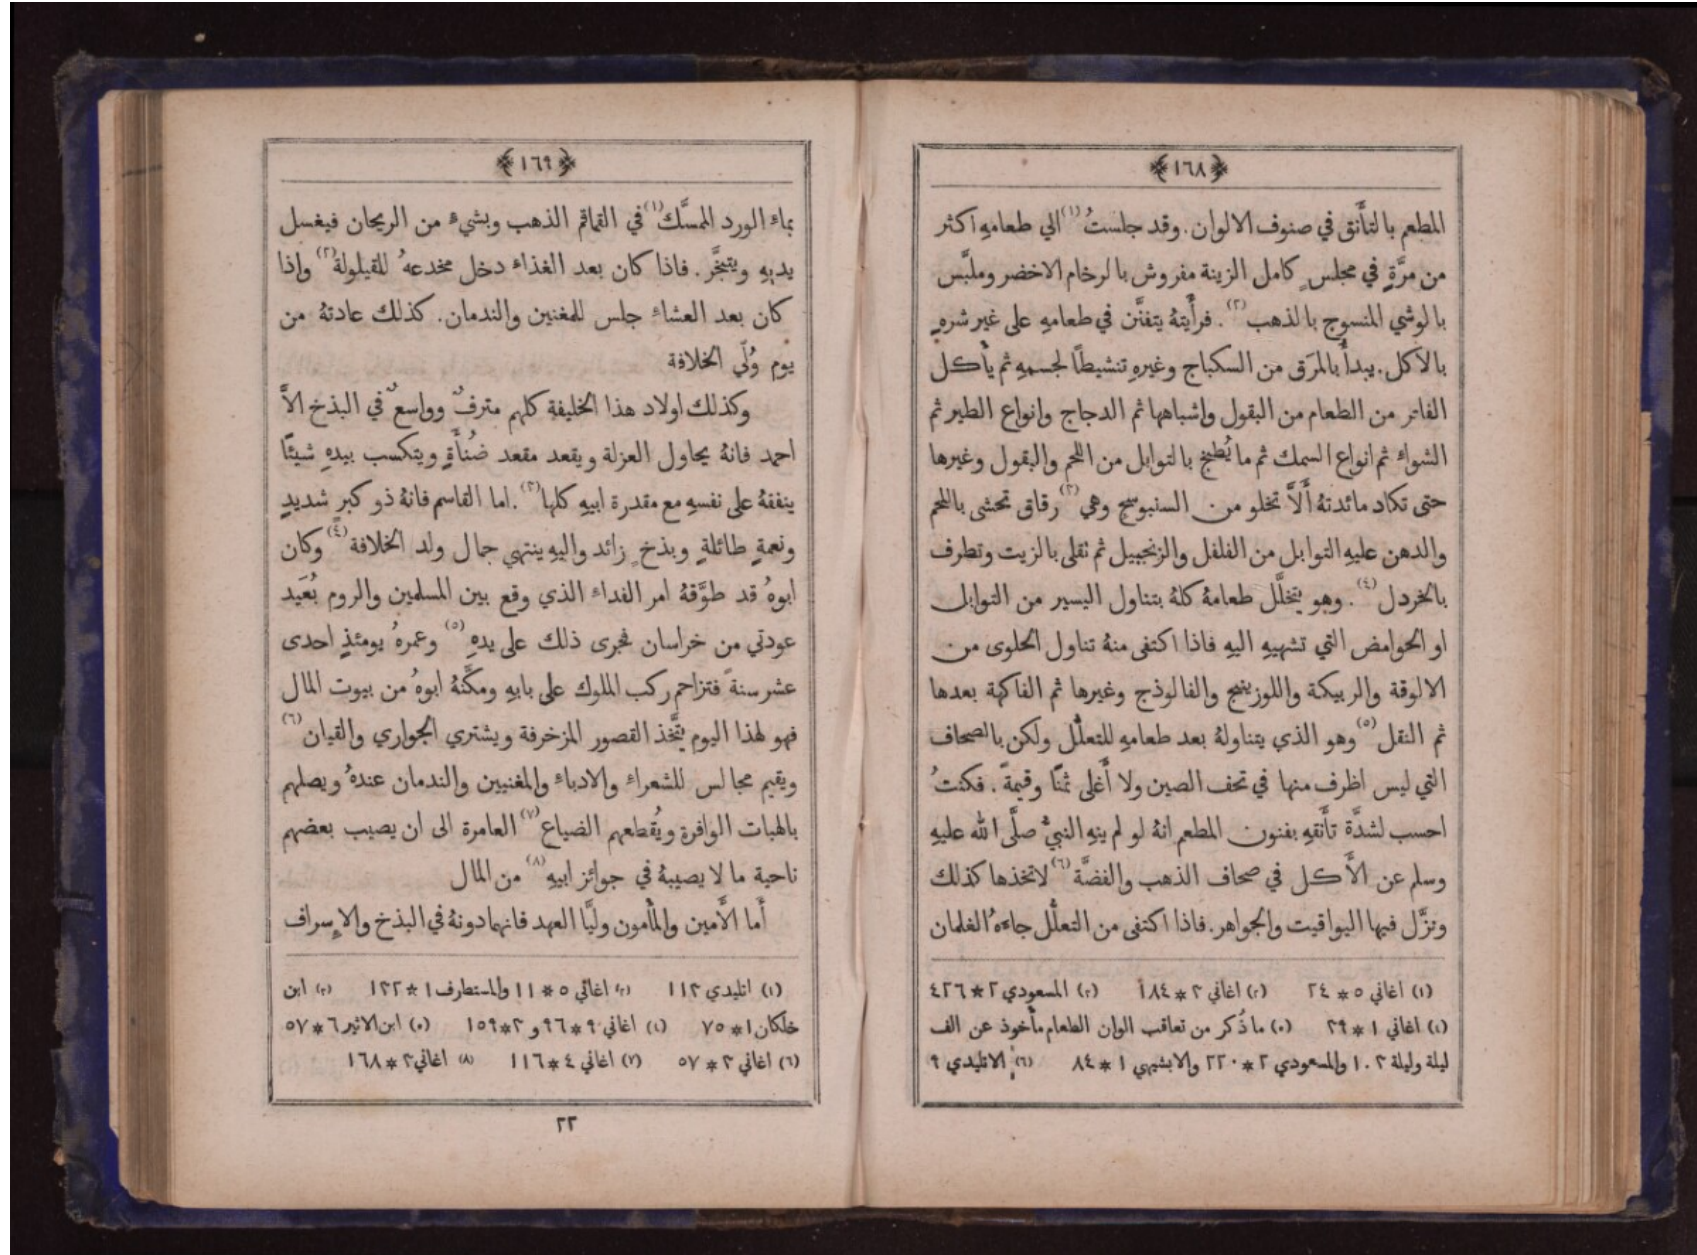 ﴿١٦٨﴾
المطعم بالتأنق في صنوف الالوان. وقد جلستُ (١) الي طعامهِ اكثر
من مرَّةٍ في مجلسٍ كامل الزينة مفروش بالرخام الاخضر وملبَّس
بالوشي المنسوج بالذهب (٢). فرأَيتهُ يتفنَّن في طعامهِ على غير شرهٍ
بالاكل. يبدأُ بالمرَق من السكباج وغيرهِ تنشيطًا لجسمهِ ثم يأكل
الفاتر من الطعام من البقول واشباهها ثم الدجاج وانواع الطير ثم
الشواء ثم انواع السمك ثم ما يُطبخ بالتوابل من اللحم والبقول وغيرها
حتى تكاد مائدتهُ أَلاَّ تخلو من السنبوسج وهي (٣) رقاق تحشى باللحم
والدهن عليهِ التوابل من الفلفل والزنجبيل ثم تقلى بالزيت وتطرف
بالخردل (٤). وهو يتخلَّل طعامهُ كلهُ بتناول اليسير من التوابل
او الحوامض التي تشهيهِ اليهِ فاذا اكتفى منهُ تناول الحلوى من
الالوقة والربيكة واللوزينج والفالوذج وغيرها ثم الفاكهة بعدها
ثم النقل (٥) وهو الذي يتناولهُ بعد طعامهِ للتعلُّل ولكن بالصحاف
التي ليس اظرف منها في تحف الصين ولا أَغلى ثمنًا وقيمةً. فكنتُ
احسب لشدَّة تأَنقهِ بفنون المطعم انهُ لو لم ينهِ النبيُّ صلَّى الله عليهِ
وسلم عن الأَكل في صحاف الذهب والفضَّة (٦) لاتخذها كذلك
ونزَّل فيها اليواقيت والجواهر. فاذا اكتفى من التعلُّل جاءهُ الغلمان
(١) اغاني ٥*٢٤ (٢) اغاني ٢*١٨٤ (٣) المسعودي ٢*٤٢٦
(٤) اغاني ١*٢٩ (٥) ما ذُكر من تعاقب الوان الطعام مأخوذ عن الف
ليلة وليلة ١٠٢ والمسعودي ٢*٢٢٠ والابشيهي ١*٨٤ (٦) الاتليدي ٩
﴿١٦٩﴾
بماء الورد الممسَّك (١) في القماقم الذهب وبشيء من الريحان فيغسل
يديهِ ويتبخَّر. فاذا كان بعد الغذاء دخل مخدعهُ للقيلولة (٢) واذا
كان بعد العشاء جلس للمغنين والندمان. كذلك عادتهُ من
يوم وُلّي الخلافة
وكذلك اولاد هذا الخليفة كلهم مترفٌ وواسعٌ في البذخ الاَّ
احمد فانهُ يحاول العزلة ويقعد مقعد ضُنأَةٍ ويتكسب بيدهِ شيئًا
ينفقهُ على نفسهِ مع مقدرة ابيهِ كلها (٣). اما القاسم فانهُ ذو كبرٍ شديدٍ
ونعمةٍ طائلةٍ وبذخٍ زائد واليهِ ينتهي جمال ولد الخلافة (٤) وكان
ابوهُ قد طوَّقهُ امر الفداء الذي وقع بين المسلمين والروم بُعَيد
عودتي من خراسان فجرى ذلك على يدهِ (٥) وعمرهُ يومئذٍ احدى
عشر سنةً فتزاحم ركب الملوك على بابهِ ومكَّنهُ ابوهُ من بيوت المال
فهو لهذا اليوم يتَّخذ القصور المزخرفة ويشتري الجواري والقيان (٦)
ويقيم مجالس للشعراء والادباء والمغنيين والندمان عندهُ ويصلهم
بالهبات الوافرة ويُقطعهم الضياع (٧) العامرة الى ان يصيب بعضهم
ناحية ما لا يصيبهُ في جوائز ابيهِ (٨) من المال
أَما الأَمين والمأْمون وليَّا العهد فانهما دونهُ في البذخ والاِسراف
(١) اتليدي ١١٢ (٢) اغاني ٥*١١ والمستطرف ١*١٢٢ (٣) ابن
خلكان ١*٧٥ (٤) اغاني ٩*٩٦ و ٢*١٥٩ (٥) ابن الاثير ٦*٥٧
(٦) اغاني ٢*٥٧ (٧) اغاني ٤*١١٦ (٨) اغاني ٢*١٦٨
٢٢